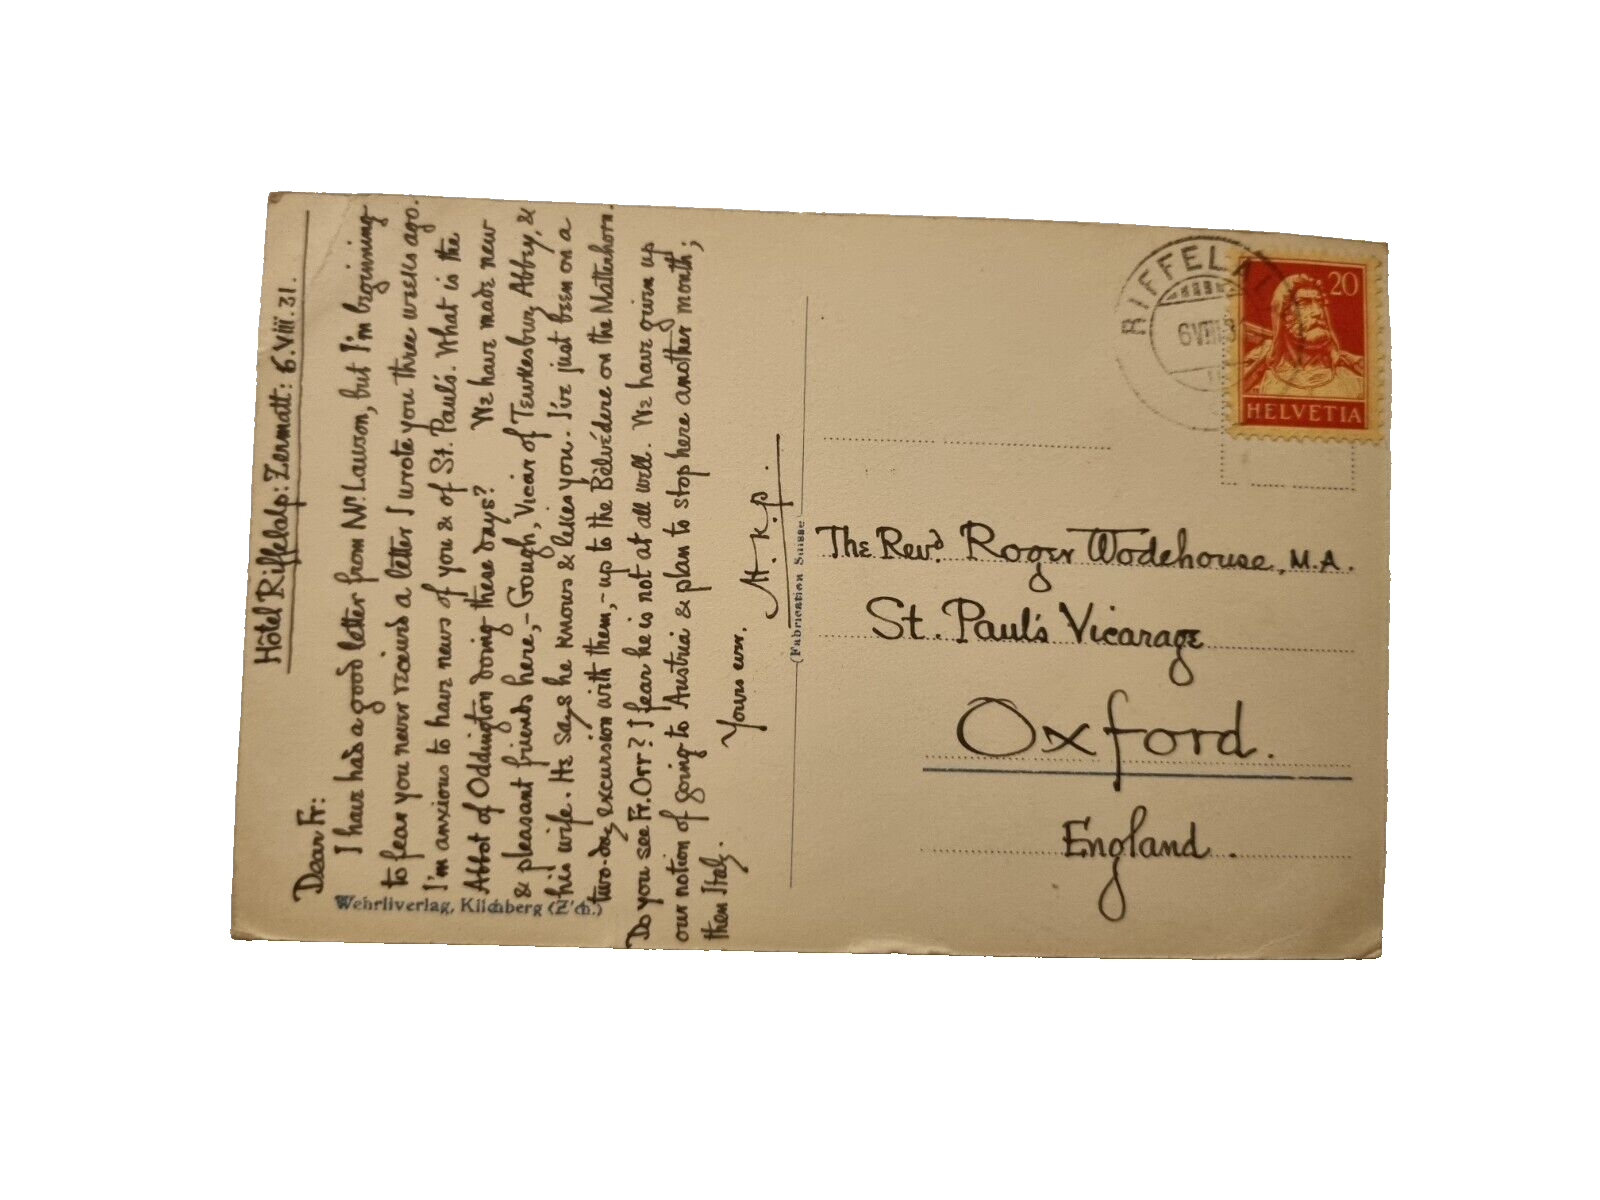 Hôtel Riffelalp: Zermatt: 6.VIII.31.
Dear Fr:
I have had a good letter from Mr. Lawson, but I'm beginning
to fear you never received a letter I wrote you three weeks ago.
I'm anxious to have news of you & of St. Paul's. What is the
Abbot of Oddington doing these days? We have made new
& pleasant friends here,- Gough, Vicar of Tewkesbury Abbey, &
his wife. He says he knows & likes you. I've just been on a
two-day excursion with them,- up to the Bèlvédere on the Matterhorn.
Do you see Fr. Orr? I fear he is not at all well. We have given up
our notion of going to Austria & plan to stop here another month;
then Italy.
Yours ever.
H.K.P.
Wehrliverlag, Kilchberg (Z'ch.)
(Fabrication Suisse)
RIFFELAL
6 VIII 3
20
HELVETIA
The Revd. Roger Wodehouse, M.A.
St. Paul's Vicarage
Oxford.
England.